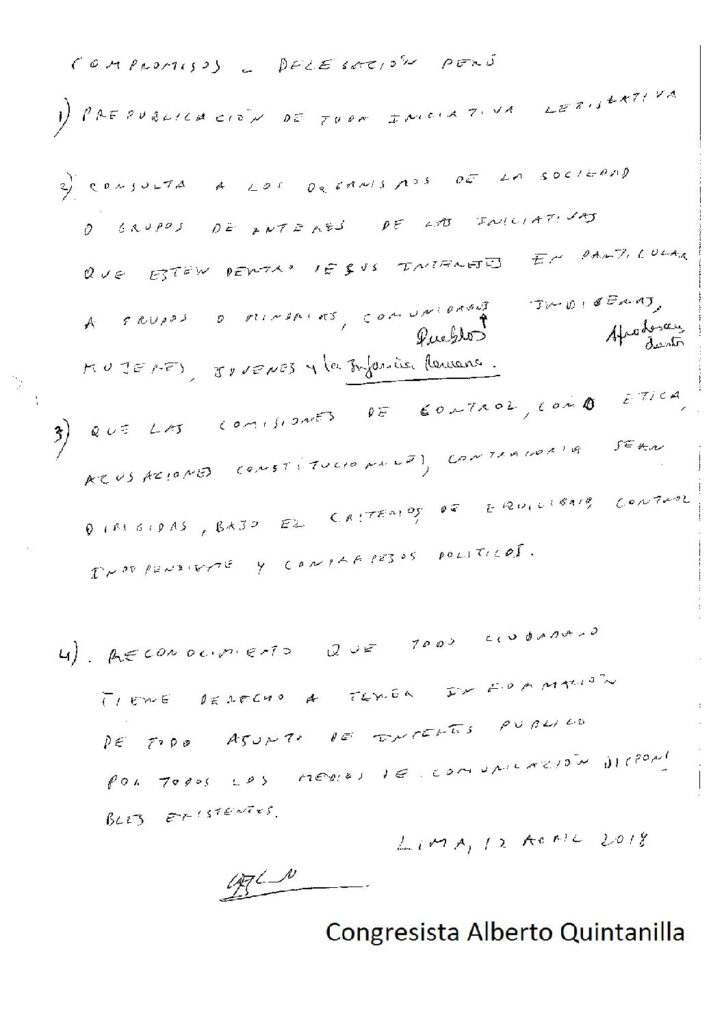 COMPROMISOS - DELEGACIÓN PERÚ
1) PREPUBLICACIÓN DE TODA INICIATIVA LEGISLATIVA
2) CONSULTA A LOS ORGANISMOS DE LA SOCIEDAD
O GRUPOS DE INTERES DE LAS INICIATIVAS
QUE ESTEN DENTRO DE SUS INTERESES EN PARTICULAR
A GRUPOS O MINORIAS, COMUNIDADES INDIGENAS,
Pueblos Afrodescendientes
MUJERES, JOVENES y la Infancia Peruana.
3) QUE LAS COMISIONES DE CONTROL, COMO ETICA,
ACUSACIONES CONSTITUCIONALES, CONTRALORIA SEAN
DIRIGIDAS, BAJO EL CRITERIOS, DE EQUILIBRIO, CONTROL
INDEPENDIENTE Y CONTRAPESOS POLITICOS.
4). RECONOCIMIENTO QUE TODO CIUDADANO
TIENE DERECHO A TENER INFORMACIÓN
DE TODO ASUNTO DE INTERÉS PUBLICO
POR TODOS LOS MEDIOS DE COMUNICACIÓN DISPONI
BLES EXISTENTES.
LIMA, 12 ABRIL 2018
Congresista Alberto Quintanilla